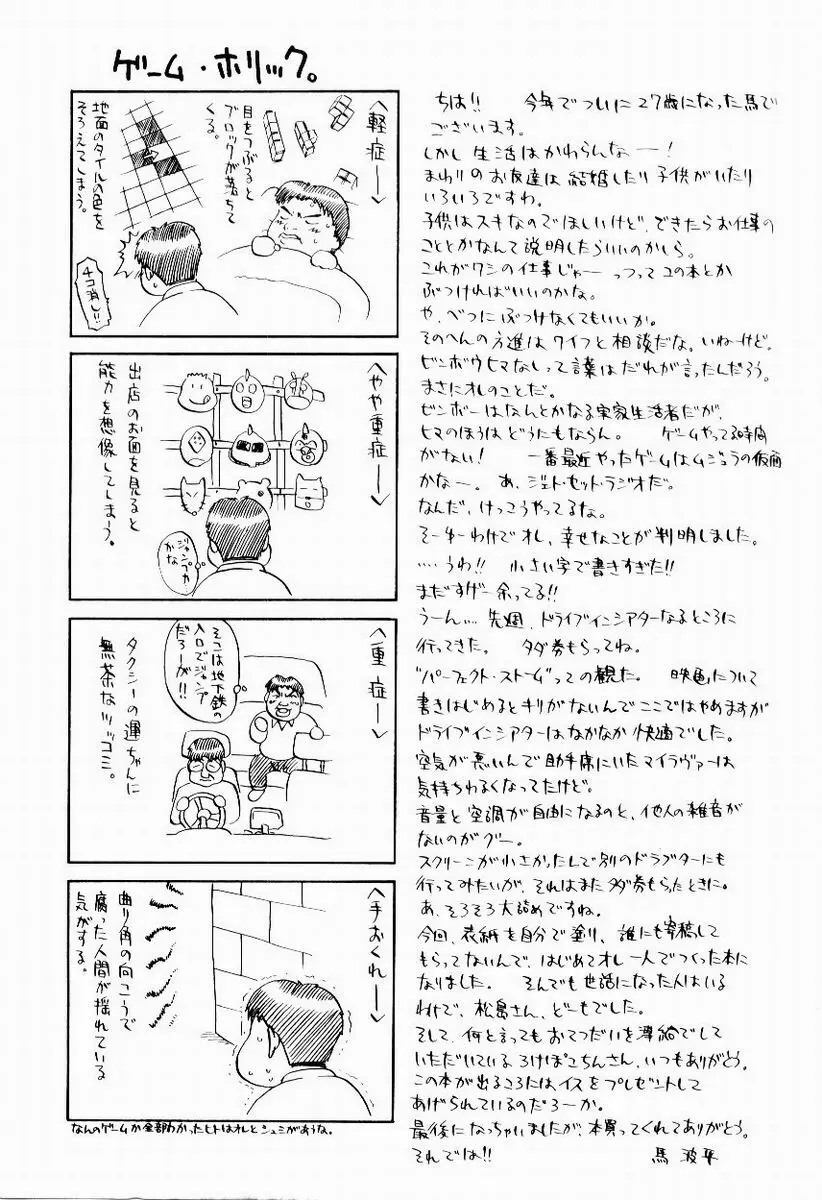 ゲーム・ホリック。
〈軽症〉
目をつぶると
ブロックが落ちて
くる。
地面のタイルの色を
そろえてしまう。
4コ消し!!
〈やや重症〉
出店のお面を見ると
能力を想像してしまう。
ジャンプカ
かな
〈重症〉
そこは地下鉄の
入口でジャンプ
だろーが!!
タクシーの運ちゃんに
無茶なツッコミ。
〈手おくれ〉
曲り角の向こうで
腐った人間が揺れている
気がする。
なんのゲームか全部わかったヒトはオレとシュミがあうな。
ちは!! 今年でついに27歳になった馬で
ございます。
しかし生活はかわらんなー!
まわりのお友達は結婚したり子供がいたり
いろいろですわ。
子供はスキなのでほしいけど、できたらお仕事の
こととかなんて説明したらいいのかしら。
これがワシの仕事じゃー っつってコの本とか
ぶつければいいのかな。
や、べつにぶつけなくてもいいか。
そのへんの方進はワイフと相談だな。いねーけど。
ビンボウヒマなしって言葉はだれが言ったんだろう。
まさにオレのことだ。
ビンボーはなんとかなる実家生活者だが、
ヒマのほうはどうにもならん。 ゲームやってる時間
がない! 一番最近やったゲームはムジュラの仮面
かなー。 あ、ジェト・セット・ラジオだ。
なんだ、けっこうやってるな。
そーゆーわけでオレ、幸せなことが判明しました。
…うわ!! 小さい字で書きすぎた!!
まだすげー余ってる!!
うーん… 先週、ドライブインシアターなるところに
行ってきた。 タダ券もらってね。
"パーフェクト・ストーム"っての観た。 映画について
書きはじめるとキリがないんでここではやめますが
ドライブインシアターはなかなか快適でした。
空気が悪いんで助手席にいたマイラヴァーは
気持ちわるくなってたけど。
音量と空調が自由になるのと、他人の雑音が
ないのがグー。
スクリーンが小さかったんで別のドラブターにも
行ってみたいが、それはまたタダ券もらたときに。
あ、そろそろ大詰めですね。
今回、表紙を自分で塗り、誰にも寄稿して
もらってないんで、はじめてオレ一人でつくった本に
なりました。 そんでも世話になった人はいる
わけで、松島さん、どーもでした。
そして、何と言ってもおてつだいを薄給でして
いただいている ろけぽこちんさん、いつもありがとう。
この本が出るころにはイスをプレゼントして
あげられているのだろーか。
最後になっちゃいましたが、本買ってくれてありがとう。
それでは!! 馬 波平